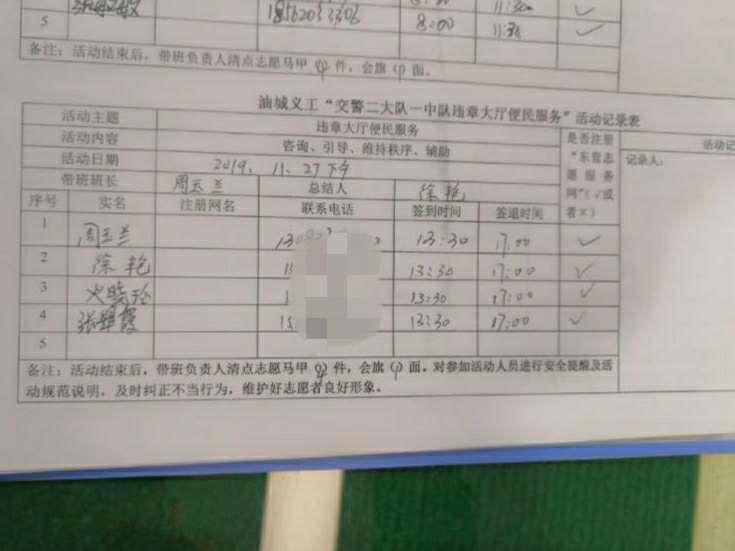 5 18562033306 8:00 11:30 ✓
备注：活动结束后，带班负责人清点志愿马甲 件，会旗 面。
油城义工“交警二大队一中队违章大厅便民服务”活动记录表
活动主题 违章大厅便民服务 是否注册“东营志愿服务网”（√或者×） 活动记
活动内容 咨询、引导、维持秩序、辅助
活动日期 2019. 11. 27 下午 记录人：
带班班长 周玉兰 总结人 徐艳
序号 实名 注册网名 联系电话 签到时间 签退时间
1 周玉兰 13:30 17:00 ✓
2 徐艳 13:30 17:00 ✓
3 火晓玲 13:30 17:00 ✓
4 13:30 17:00 ✓
5
备注：活动结束后，带班负责人清点志愿马甲 件，会旗 面。对参加活动人员进行安全提醒及活
动规范说明，及时纠正不当行为，维护好志愿者良好形象。